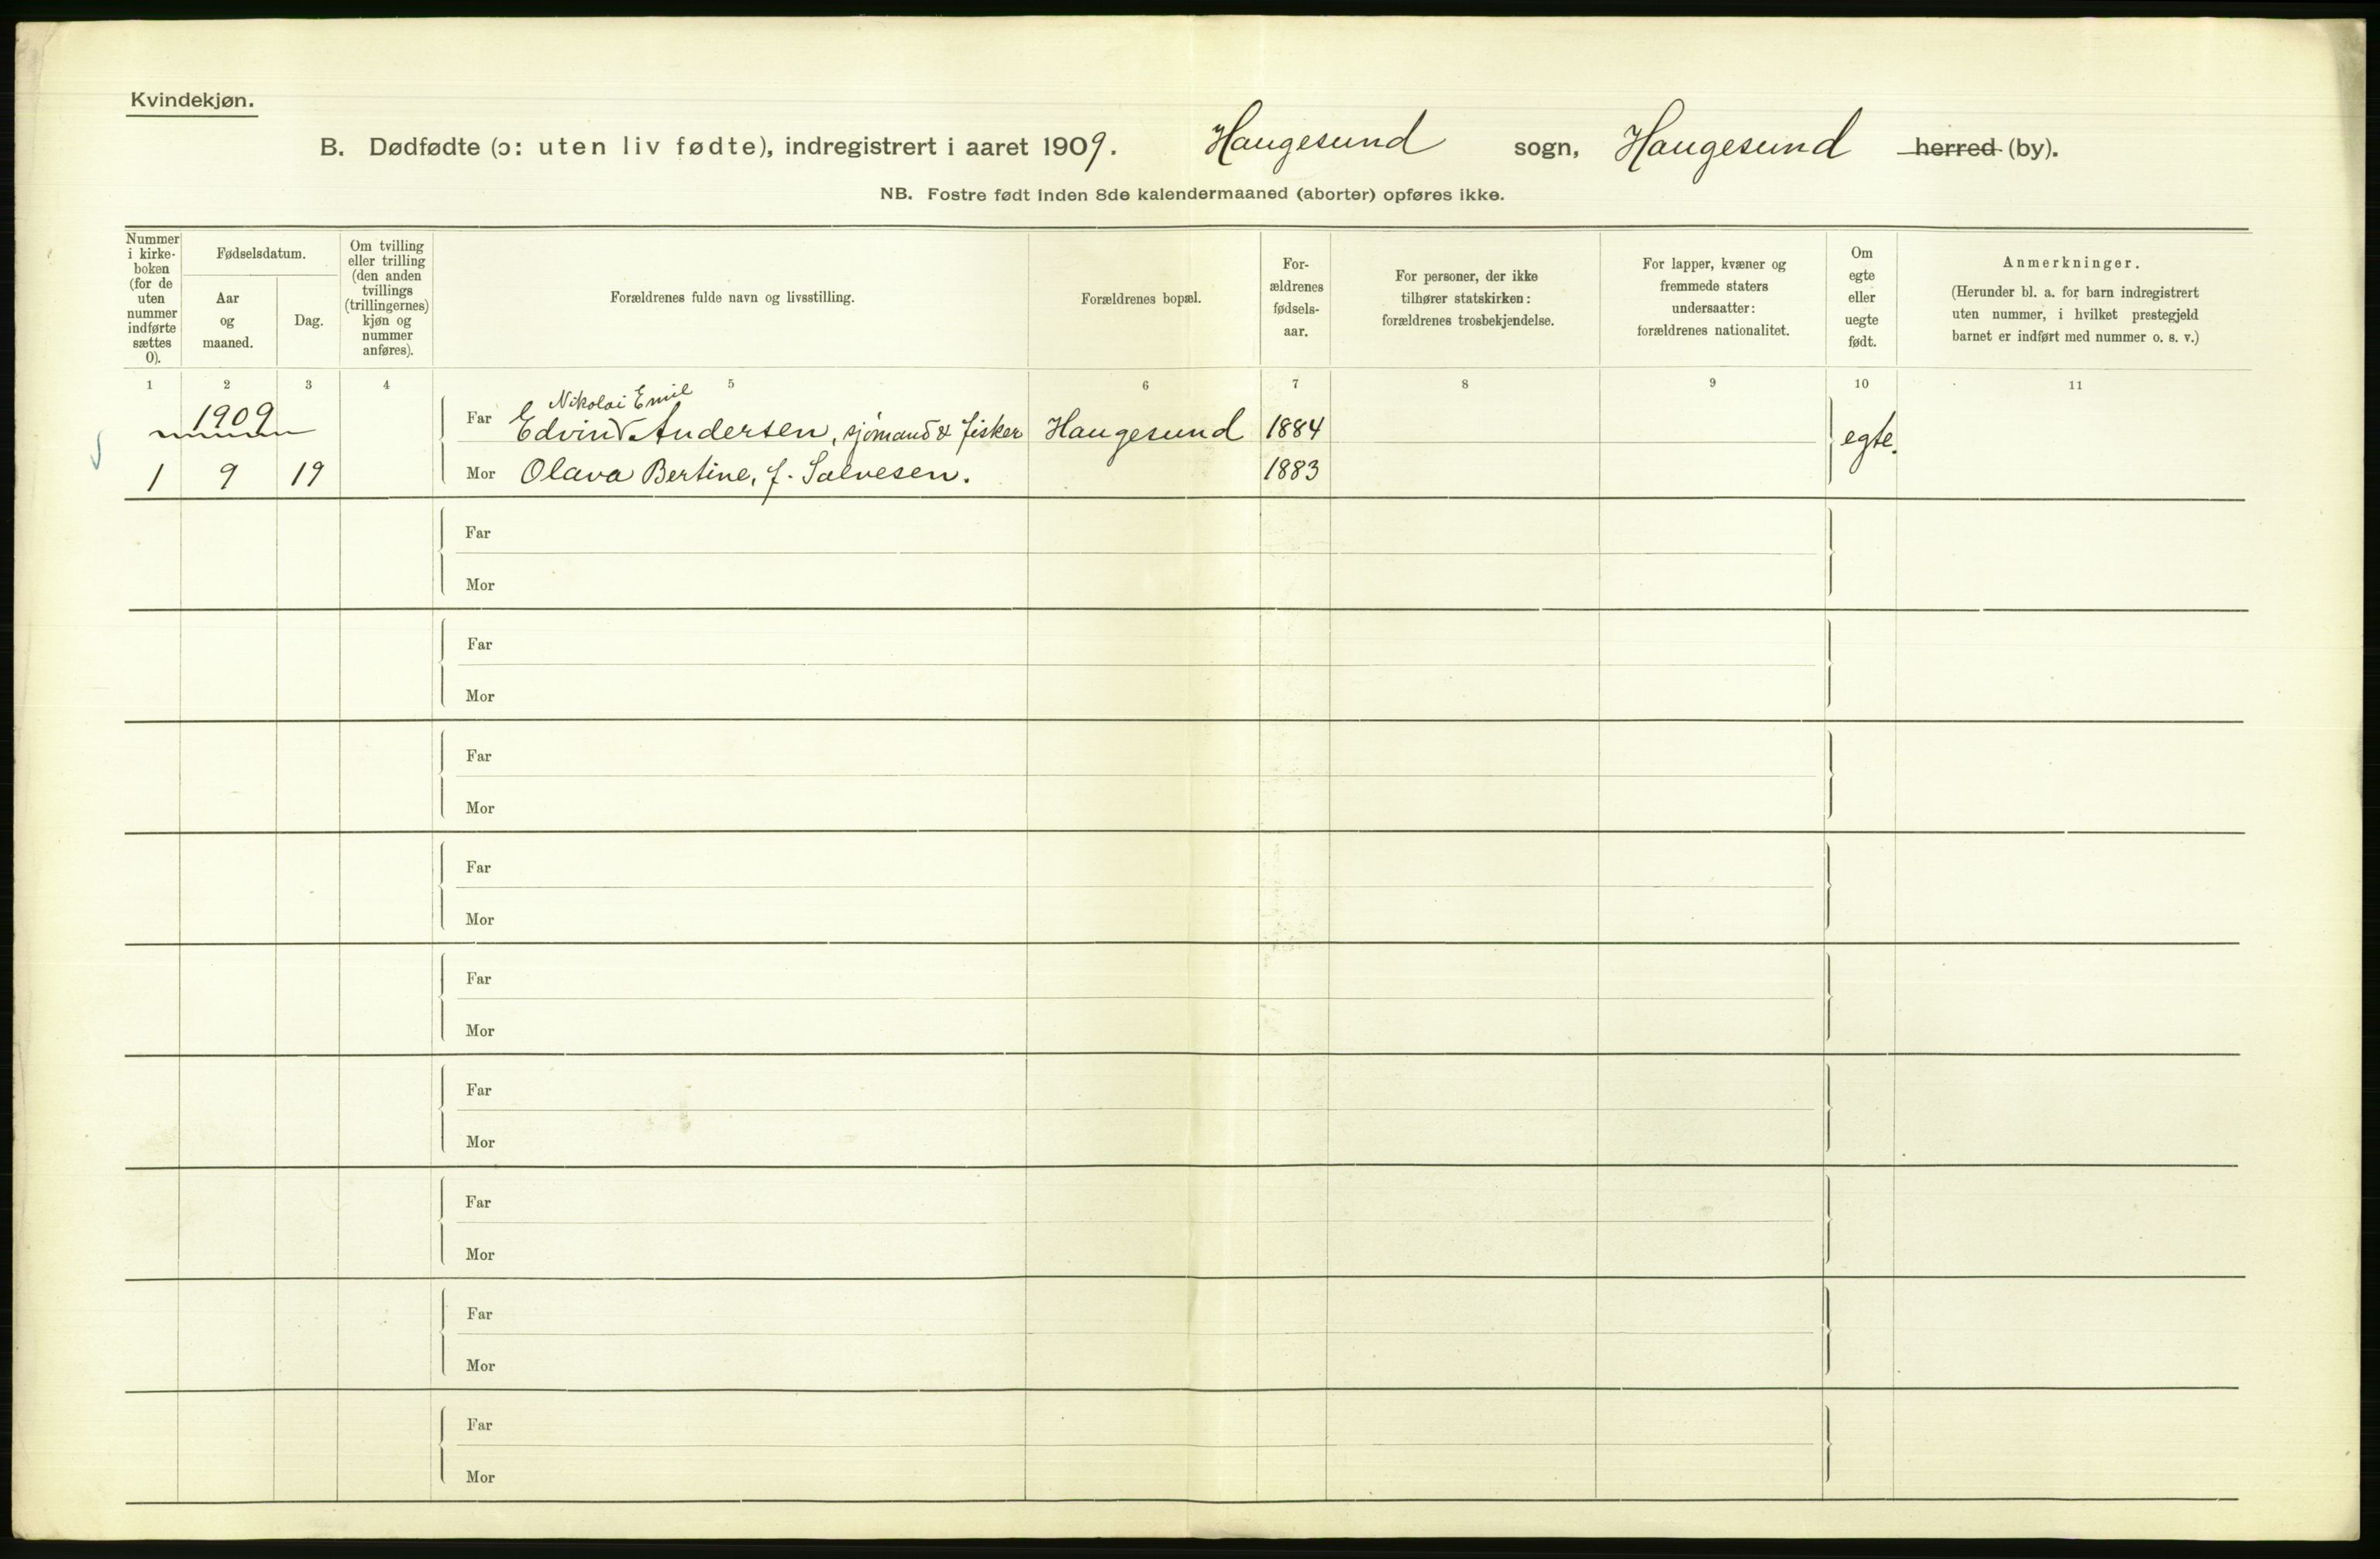 Kvindekjøn.
B. Dødfødte (ɔ: uten liv fødte), indregistrert i aaret 1909. Haugesund sogn, Haugesund herred (by).
NB. Fostre født inden 8de kalendermaaned (aborter) opføres ikke.
Nummer
i kirke-
boken
(for de
uten
nummer
indførte
sættes
0).
Fødselsdatum.
Aar
og
maaned.
Dag.
Om tvilling
eller trilling
(den anden
tvillings
(trillingernes)
kjøn og
nummer
anføres).
Forældrenes fulde navn og livsstilling.
Forældrenes bopæl.
For-
ældrenes
fødsels-
aar.
For personer, der ikke
tilhører statskirken:
forældrenes trosbekjendelse.
For lapper, kvæner og
fremmede staters
undersaatter:
forældrenes nationalitet.
Om
egte
eller
uegte
født.
Anmerkninger.
(Herunder bl. a. for barn indregistrert
uten nummer, i hvilket prestegjeld
barnet er indført med nummer o. s. v.)
1 2 3 4 5 6 7 8 9 10 11
1909
Nikolai Emil
Far Edvin Andersen, sjømand & fisker Haugesund 1884 egte.
1 9 19 Mor Olava Bertine, f. Salvesen. 1883
Far
Mor
Far
Mor
Far
Mor
Far
Mor
Far
Mor
Far
Mor
Far
Mor
Far
Mor
Far
Mor